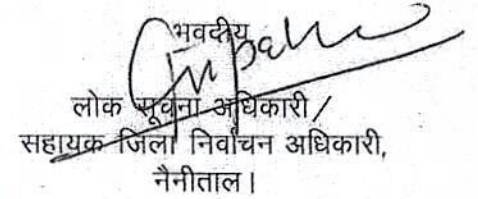 भवदीय
लोक सूचना अधिकारी /
सहायक जिला निर्वाचन अधिकारी,
नैनीताल।